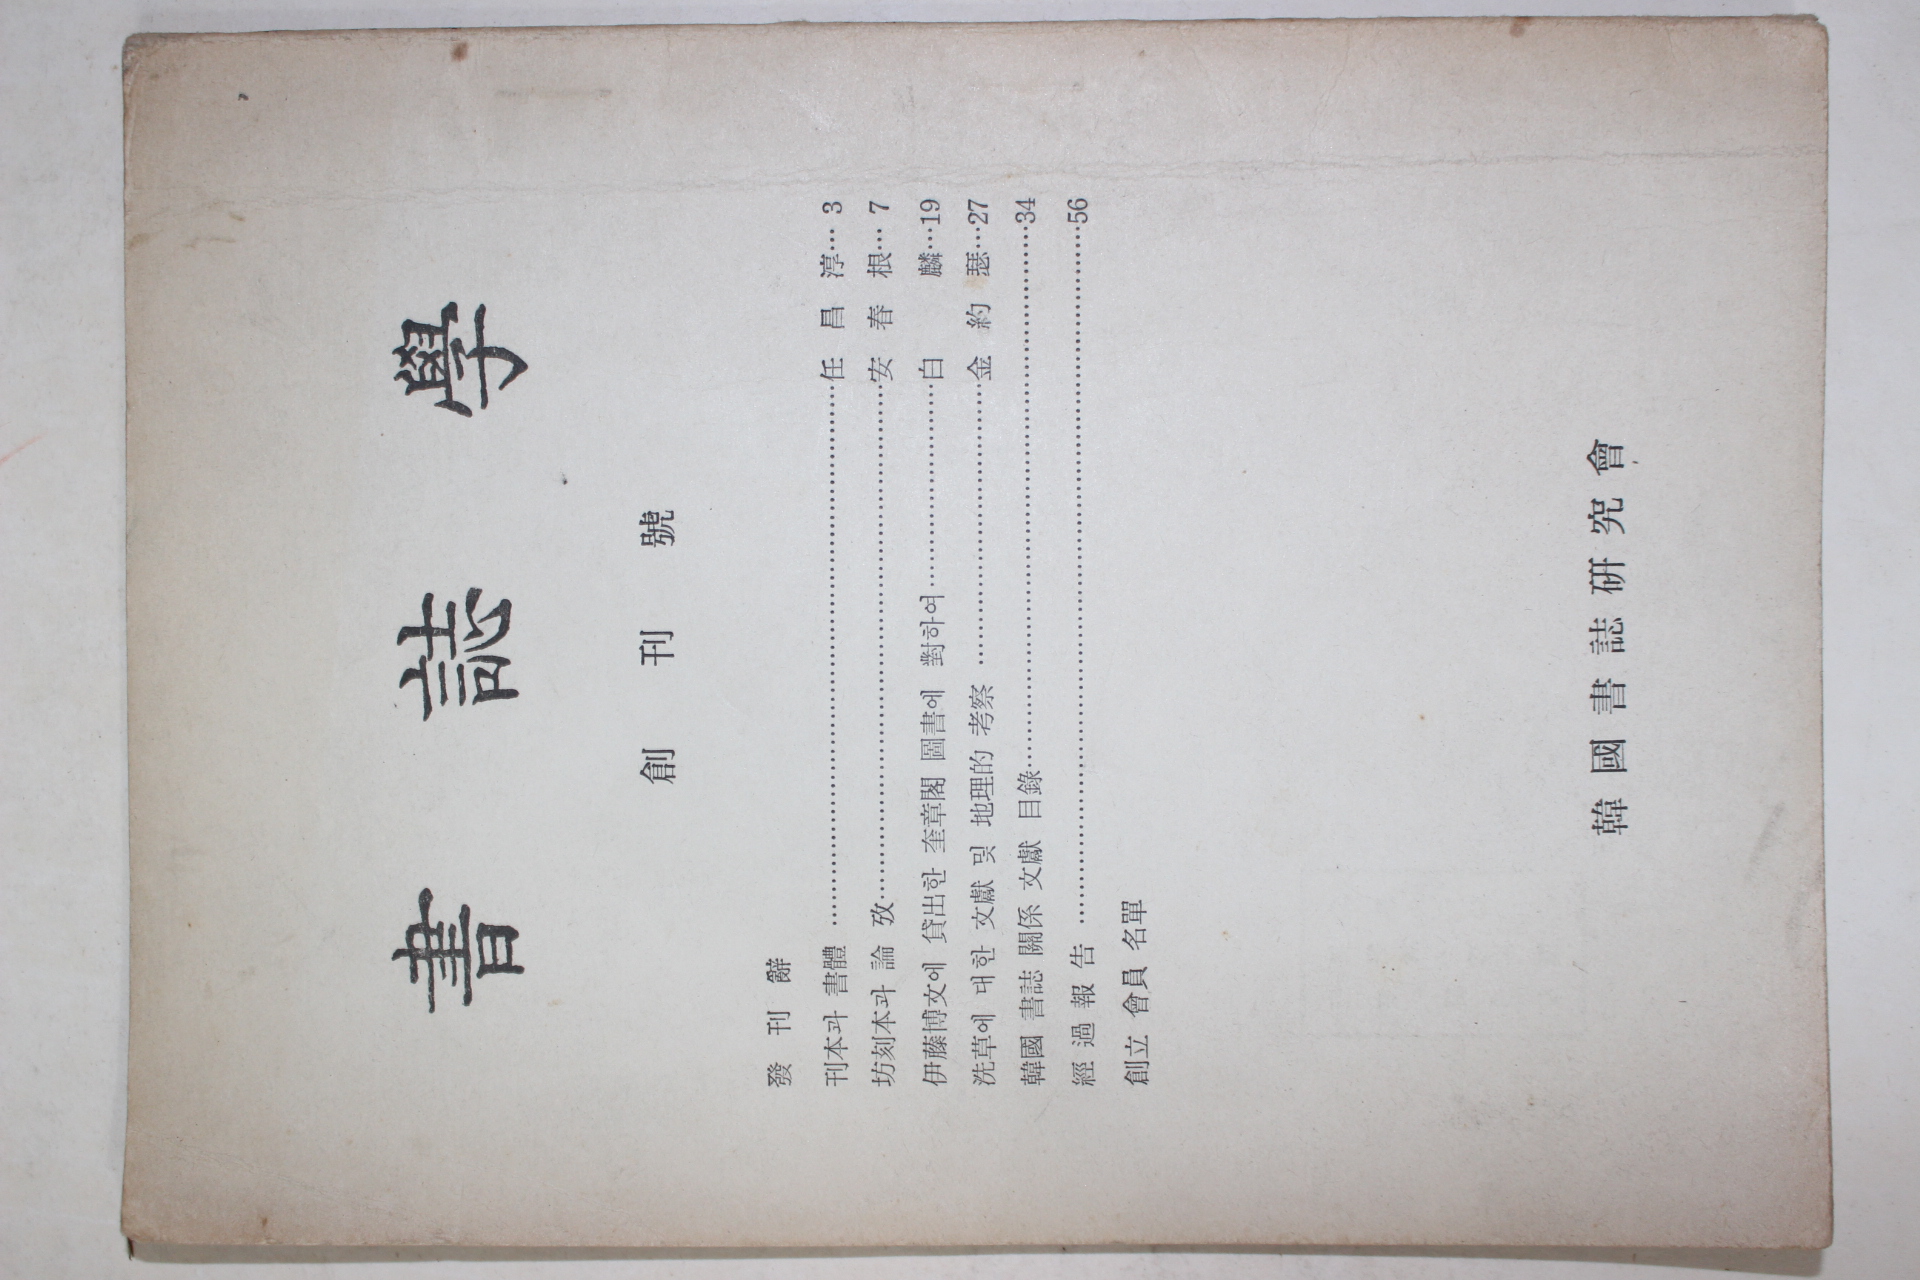 書誌學
創刊號
發刊辭
刊本과 書體 ……………任昌淳… 3
坊刻本과 論攷……………安春根… 7
伊藤博文에 貸出한 奎章閣 圖書에 對하여……………白麟…19
洗草에 대한 文獻 및 地理的 考察 ……………金約瑟…27
韓國 書誌 關係 文獻 目錄……………34
經過報告 ……………56
創立 會員 名單
韓國書誌硏究會